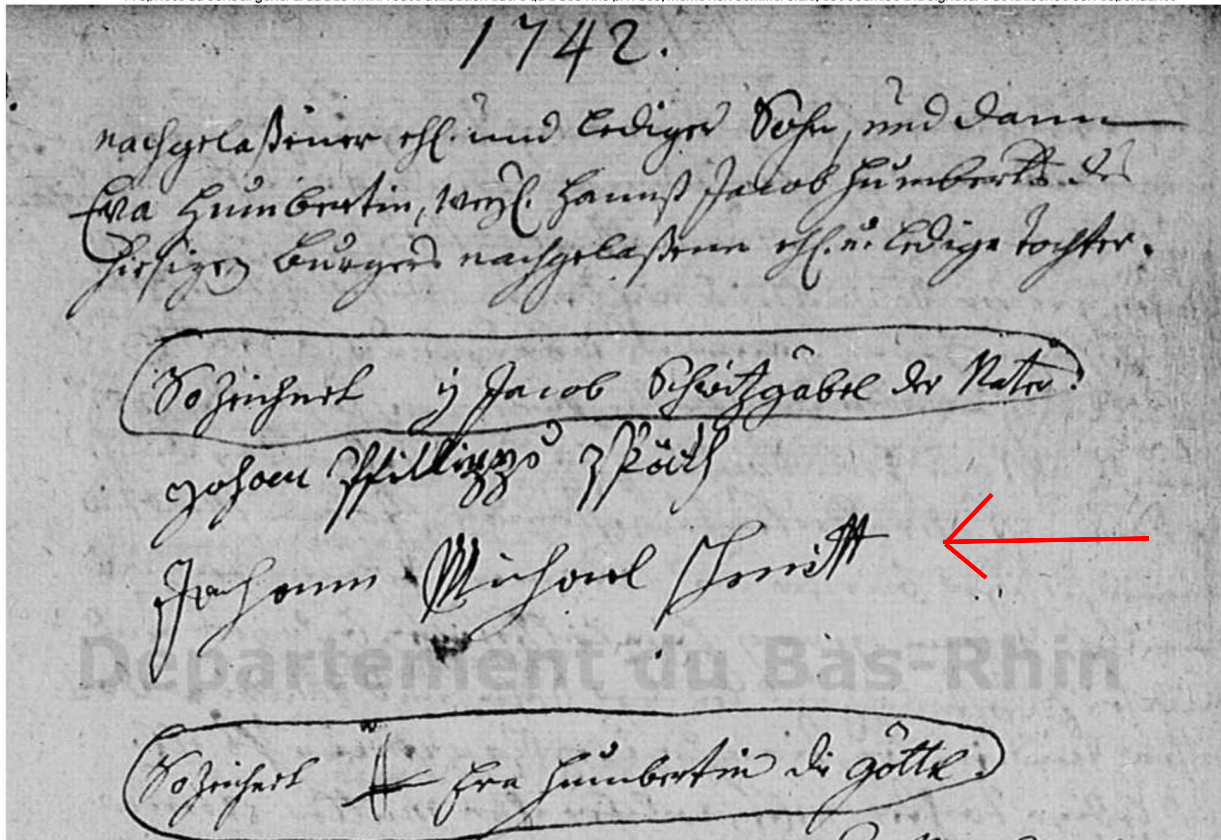 1742.
nachgelaßener ehl. und lediger Sohn, und dann
Eva Humbertin, weyl. Hannß Jacob Humberts des
hiesigen Burgers nachgelaßene ehl. u. ledige Tochter.
So zeichnet Jacob Schwitzgäbel der Vater.
Johann Phillipps
Johann Michael Schmitt
Departement du Bas-Rhin
So zeichnet Eva Humbertin die Göttel.